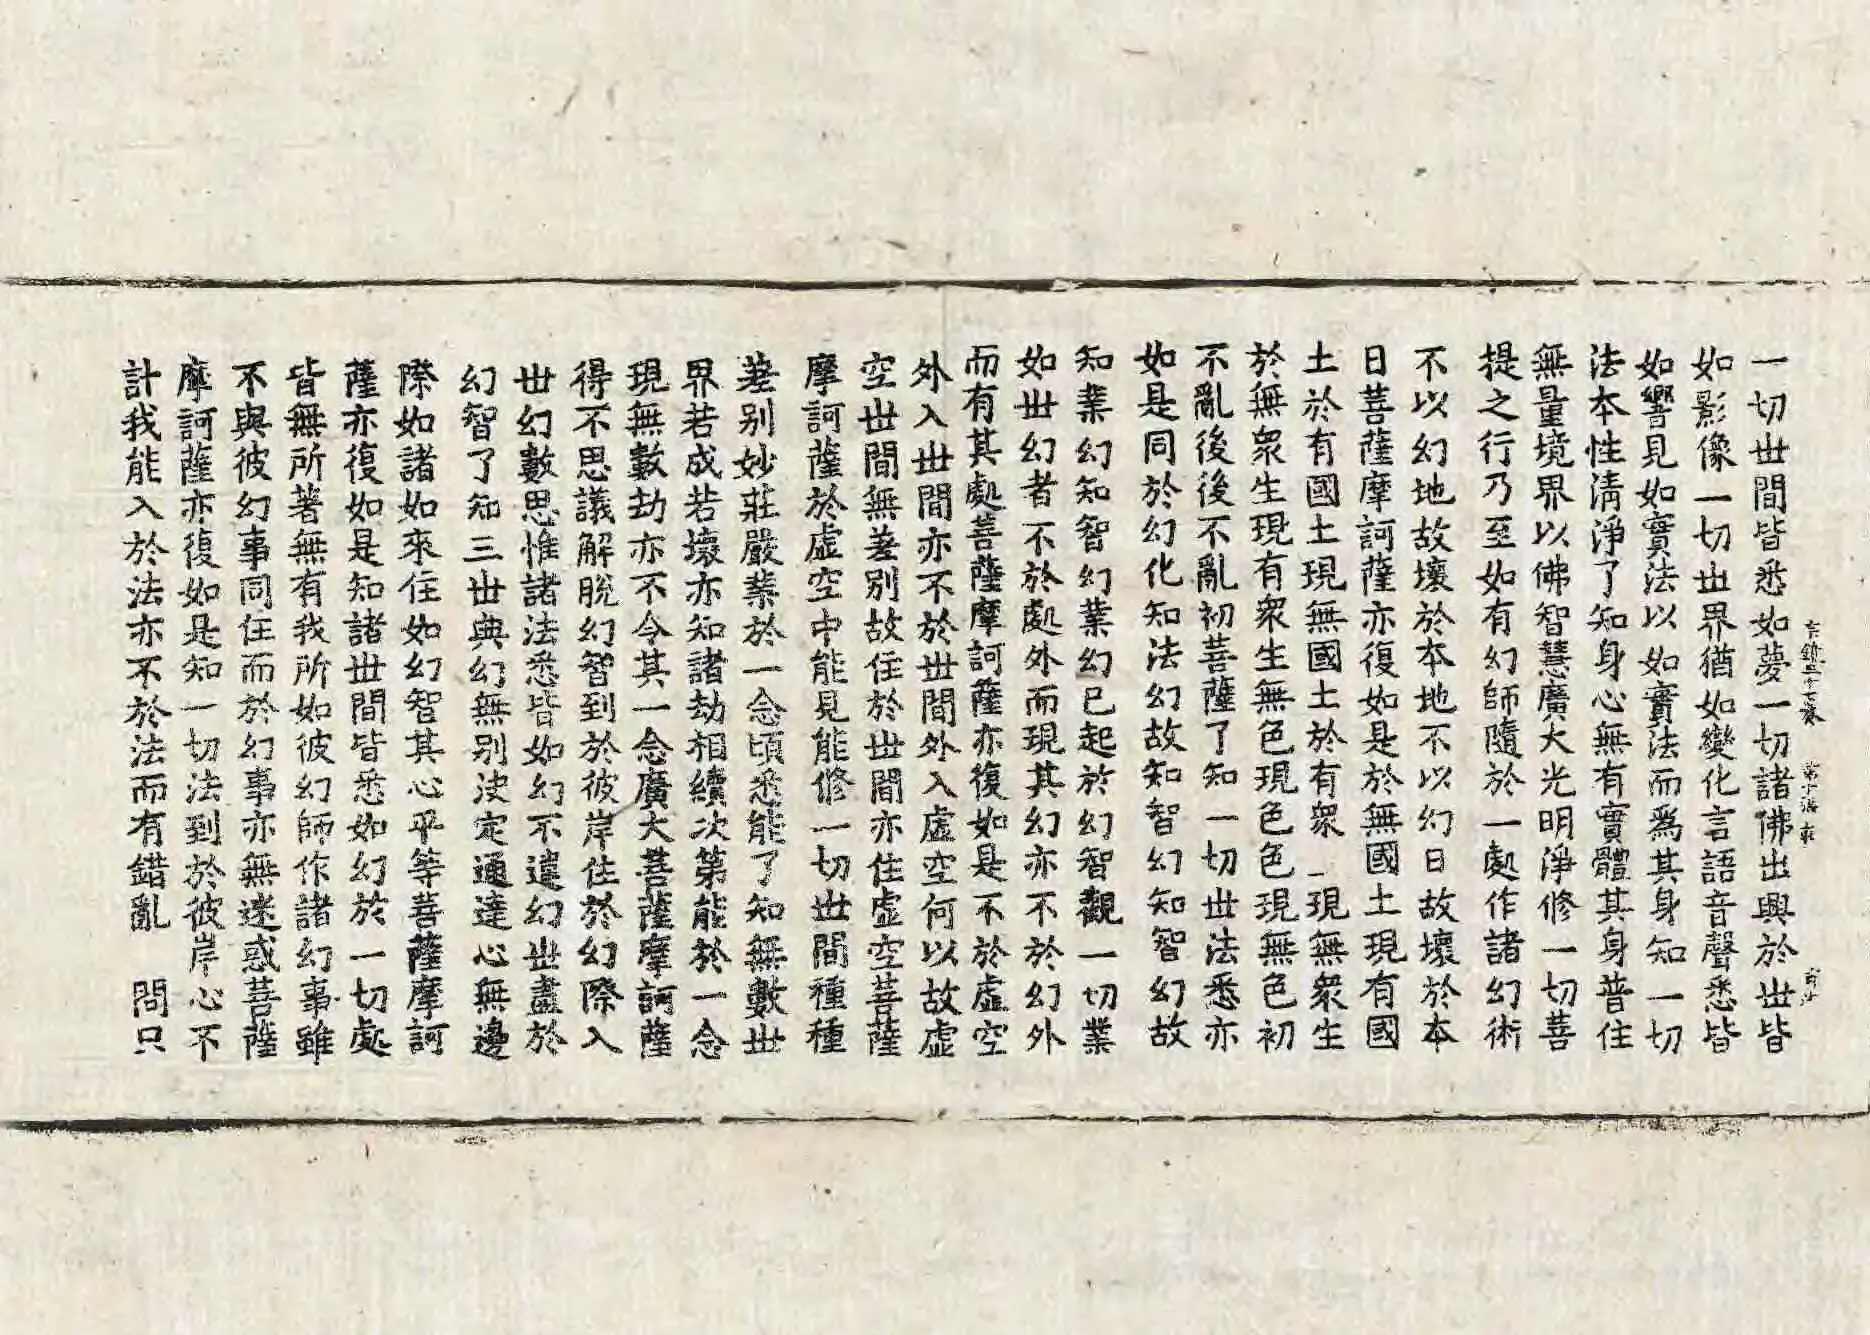 一切世間皆悉如夢一切諸佛出興於世皆
如影像一切世界猶如變化言語音聲悉皆
如響見如實法以如實法而為其身知一切
法本性清淨了知身心無有實體其身普住
無量境界以佛智慧廣大光明淨修一切菩
提之行乃至如有幻師隨於一處作諸幻術
不以幻地故壞於本地不以幻日故壞於本
日菩薩摩訶薩亦復如是於無國土現有國
土於有國土現無國土於有衆 現無衆生
於無衆生現有衆生無色現色色現無色初
不亂後後不亂初菩薩了知一切世法悉亦
如是同於幻化知法幻故知智幻知智幻故
知業幻知智幻業幻已起於幻智觀一切業
如世幻者不於處外而現其幻亦不於幻外
而有其處菩薩摩訶薩亦復如是不於虛空
外入世間亦不於世間外入虛空何以故虛
空世間無差別故住於世間亦住虛空菩薩
摩訶薩於虛空中能見能修一切世間種種
差別妙莊嚴業於一念頃悉能了知無數世
界若成若壞亦知諸劫相續次第能於一念
現無數劫亦不令其一念廣大菩薩摩訶薩
得不思議解脫幻智到於彼岸住於幻際入
世幻數思惟諸法悉皆如幻不違幻世盡於
幻智了知三世與幻無別決定通達心無邊
際如諸如來住如幻智其心平等菩薩摩訶
薩亦復如是知諸世間皆悉如幻於一切處
皆無所著無有我所如彼幻師作諸幻事雖
不與彼幻事同住而於幻事亦無迷惑菩薩
摩訶薩亦復如是知一切法到於彼岸心不
計我能入於法亦不於法而有錯亂 問只